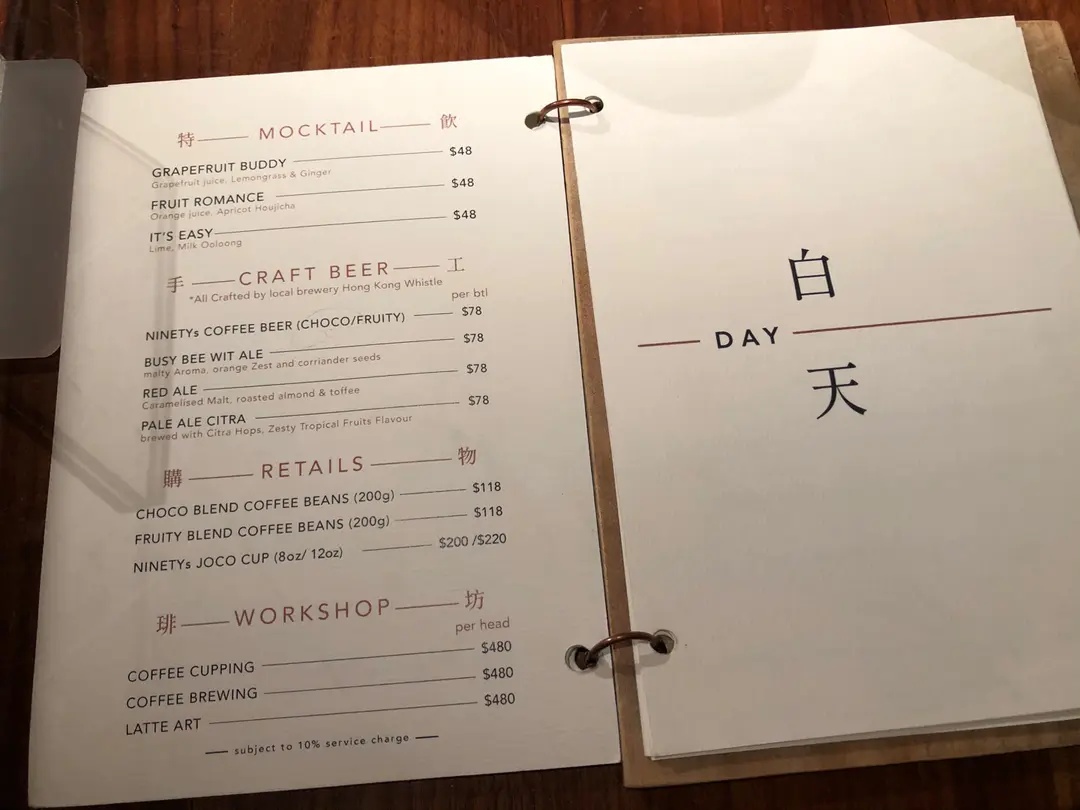 特 MOCKTAIL 飲
GRAPEFRUIT BUDDY $48
Grapefruit juice, Lemongrass & Ginger
FRUIT ROMANCE $48
Orange juice, Apricot Houjicha
IT'S EASY $48
Lime, Milk Ooloong
手 CRAFT BEER 工
*All Crafted by local brewery Hong Kong Whistle
per btl
NINETYs COFFEE BEER (CHOCO/FRUITY) $78
BUSY BEE WIT ALE $78
malty Aroma, orange Zest and corriander seeds
RED ALE $78
Caramelised Malt, roasted almond & toffee
PALE ALE CITRA $78
brewed with Citra Hops, Zesty Tropical Fruits Flavour
購 RETAILS 物
CHOCO BLEND COFFEE BEANS (200g) $118
FRUITY BLEND COFFEE BEANS (200g) $118
NINETYs JOCO CUP (8oz/ 12oz) $200 /$220
琲 WORKSHOP 坊
per head
COFFEE CUPPING $480
COFFEE BREWING $480
LATTE ART $480
subject to 10% service charge
白
DAY
天